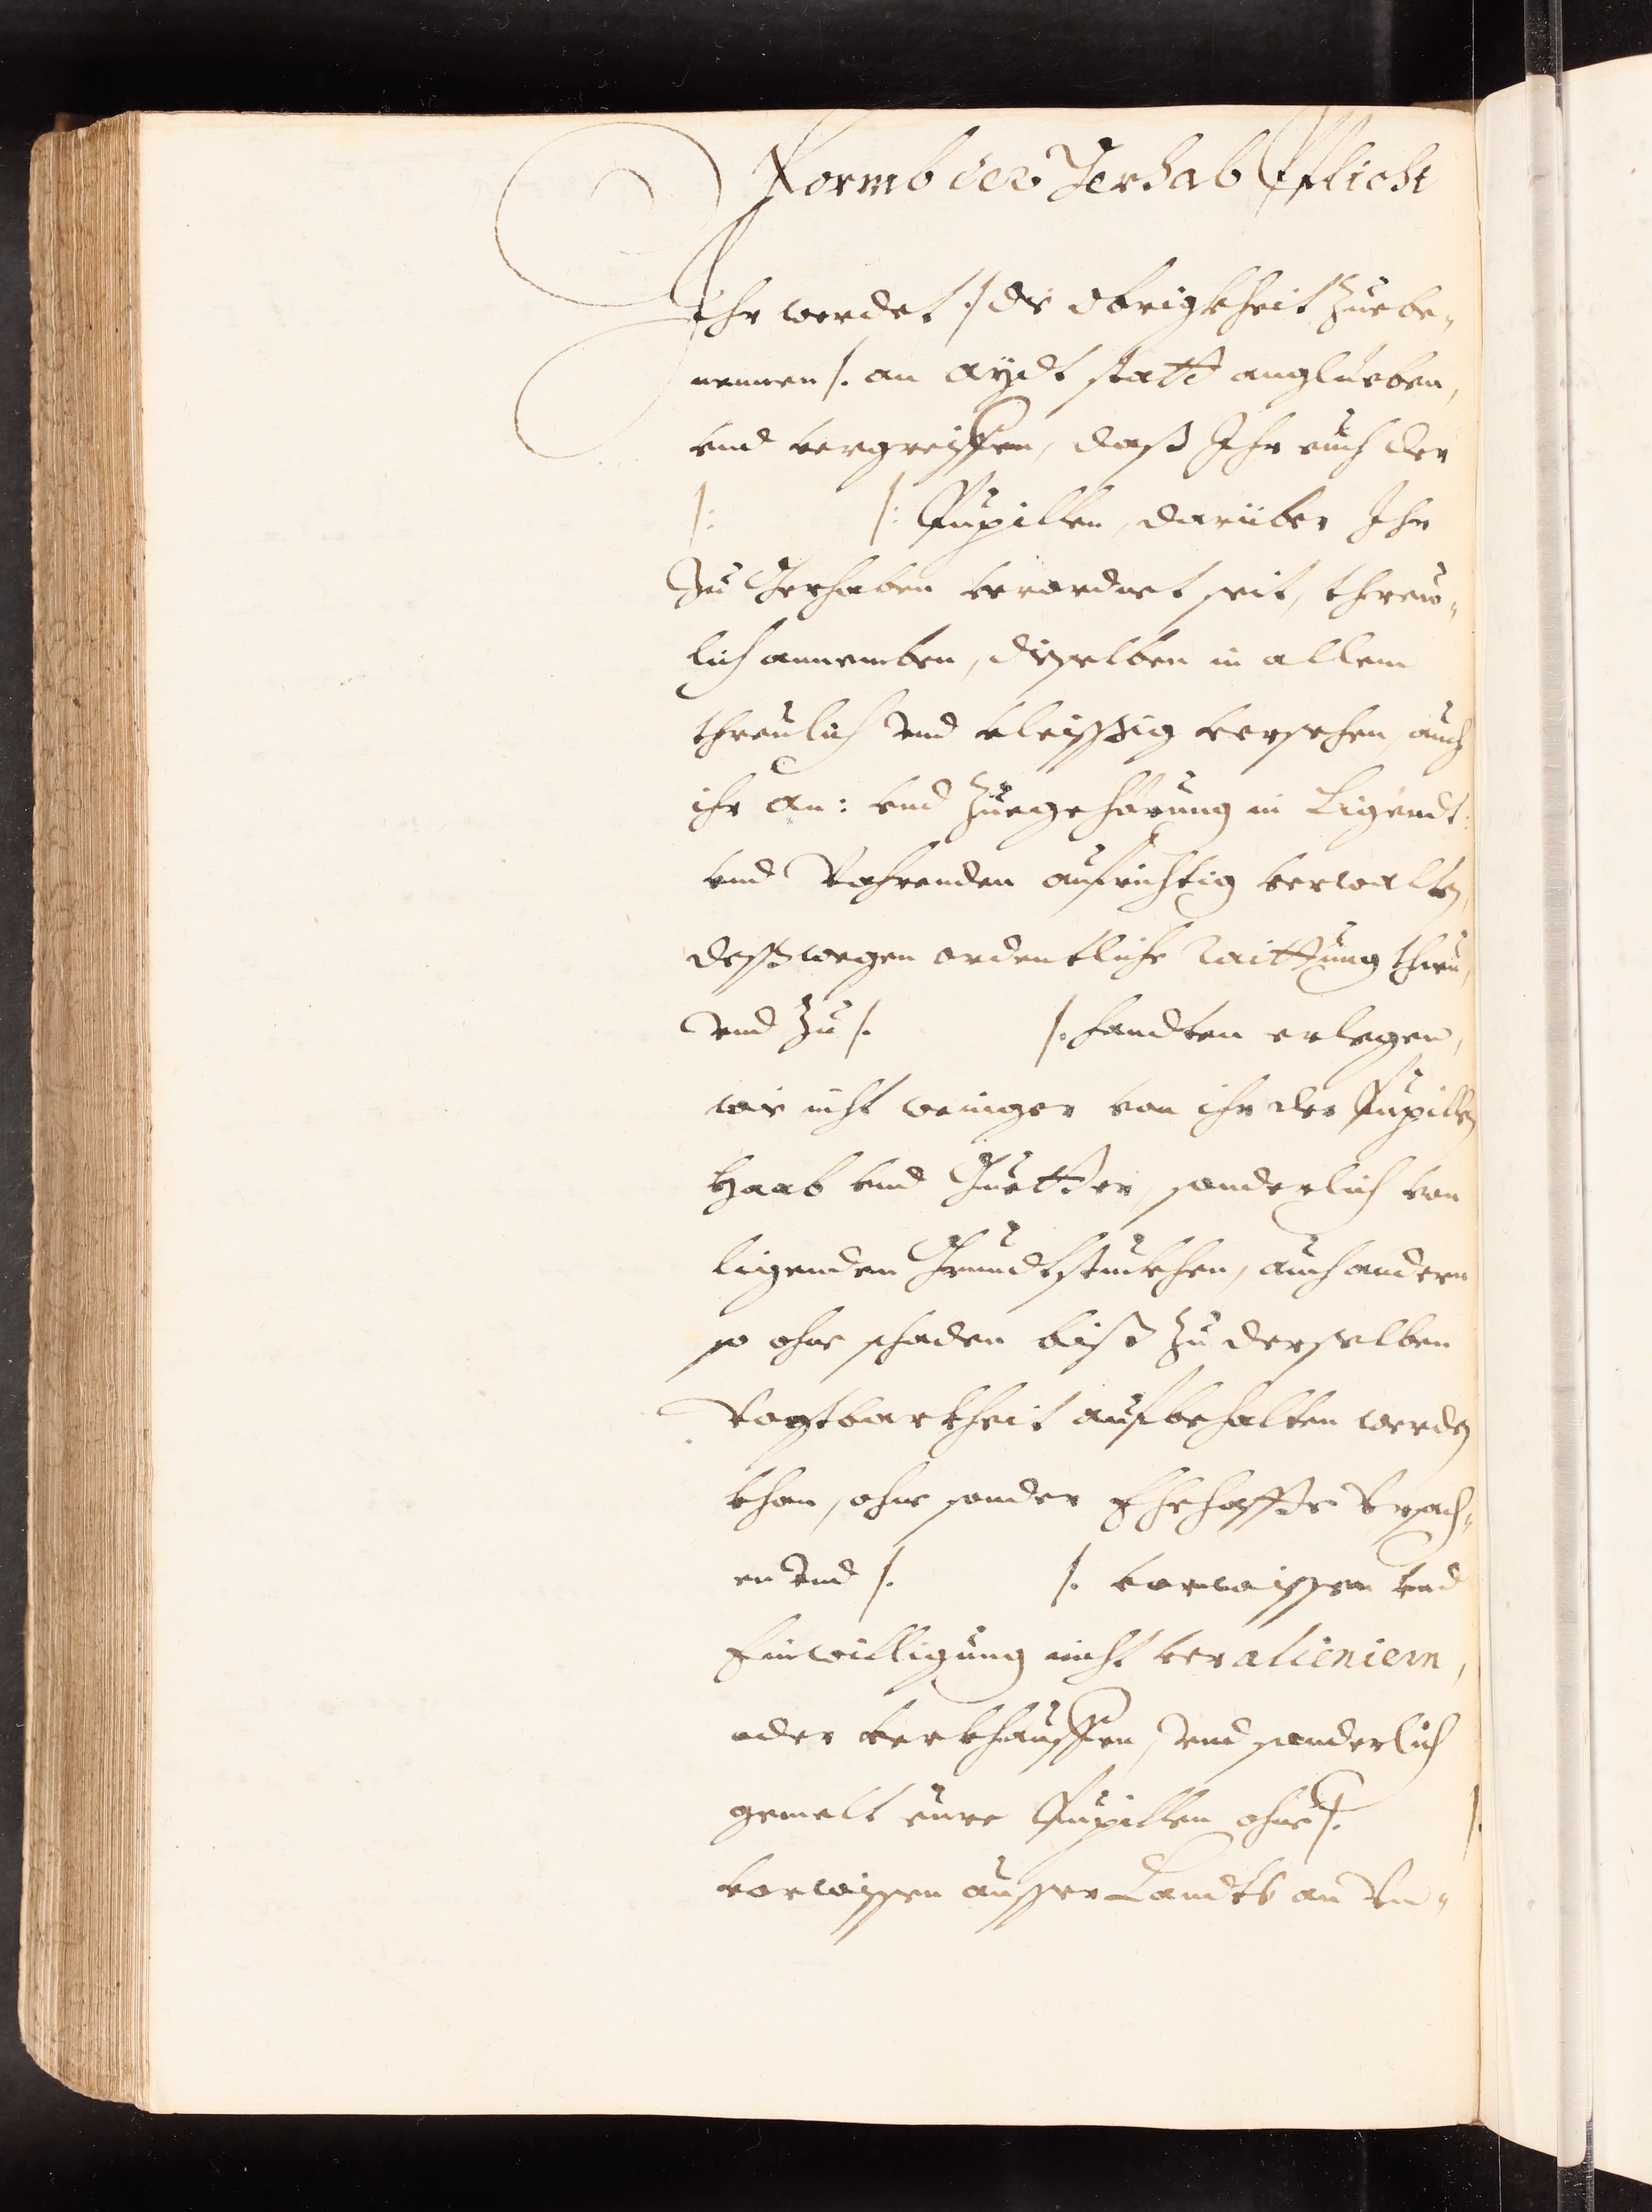 Formb der Gerhab Pflicht
Ihr werdet /: die Obrigkheit zuebe„
nennen /: an aydt statt anglüeben,
vnd vergreiffen, daß Ihr euch der
/: /: Pupillen, darüber Ihr
zu Gerhaben verordnet seit, threw„
lich annemben, dieselben in allem
threulich vnd vleissig versehen, auch
ihr An: vnd Zuegehörung in Ligendt:
vnd Vahrenden aufrichtig verwalten,
desswegen ordentliche Raittung thun,
vnd zu /: /: handten erlegen,
wie nicht weniger von ihr der Pupillen
Haab vnd Guetter, sonderlich von
ligenden Grundtstuckhen, auch andern
so ohne schaden biß zu derselben
Vogtbarkheit aufbehalten werden
khan, ohne sonder Ehehaffte Vrsach„
en vnd /: /: vorwissen vnd
Einwilligung nicht veralieniern,
oder verkhauffen, vnd sonderlich
gemelt eure Pupillen ohne /: /:
vorwissen ausser Landts an Vn„